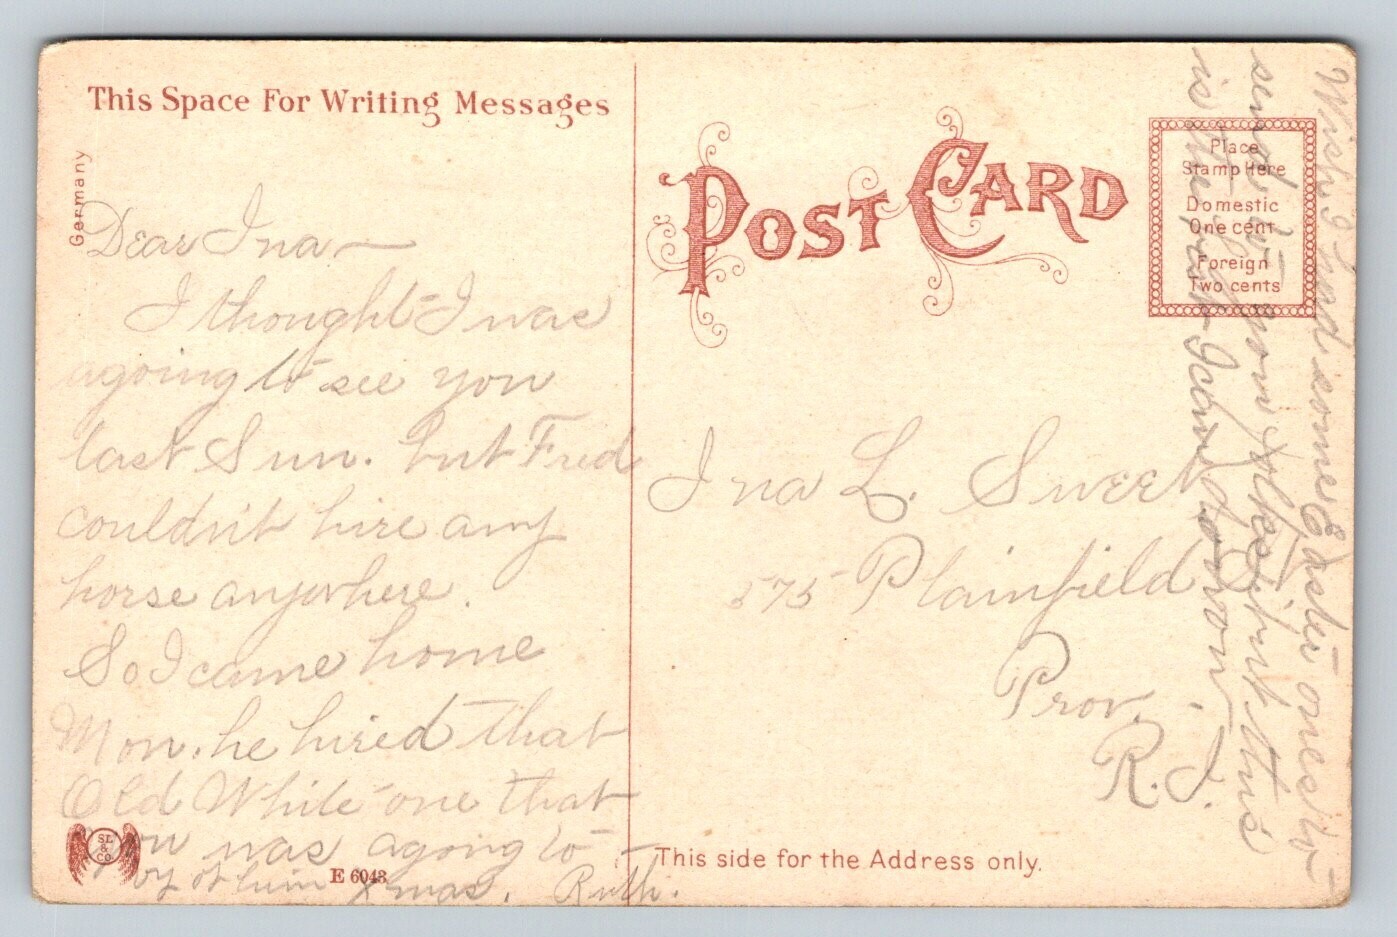 This Space For Writing Messages
Germany
Dear Ina —
I thought I was
agoing to see you
last Sun. but Fred
couldn't hire any
horse anywhere.
So I came home
Mon. he hired that
Old White one that
you was agoing to
buy of him Xmas. Ruth.
SL & CO
E 6043
POST CARD
Place
Stamp Here
Domestic
One cent
Foreign
Two cents
Ina L. Sweet
575 Plainfield St
Prov.
R.I.
This side for the Address only.
Wish I had some Easter ones to
send to you folks, but this
is the best I can do now